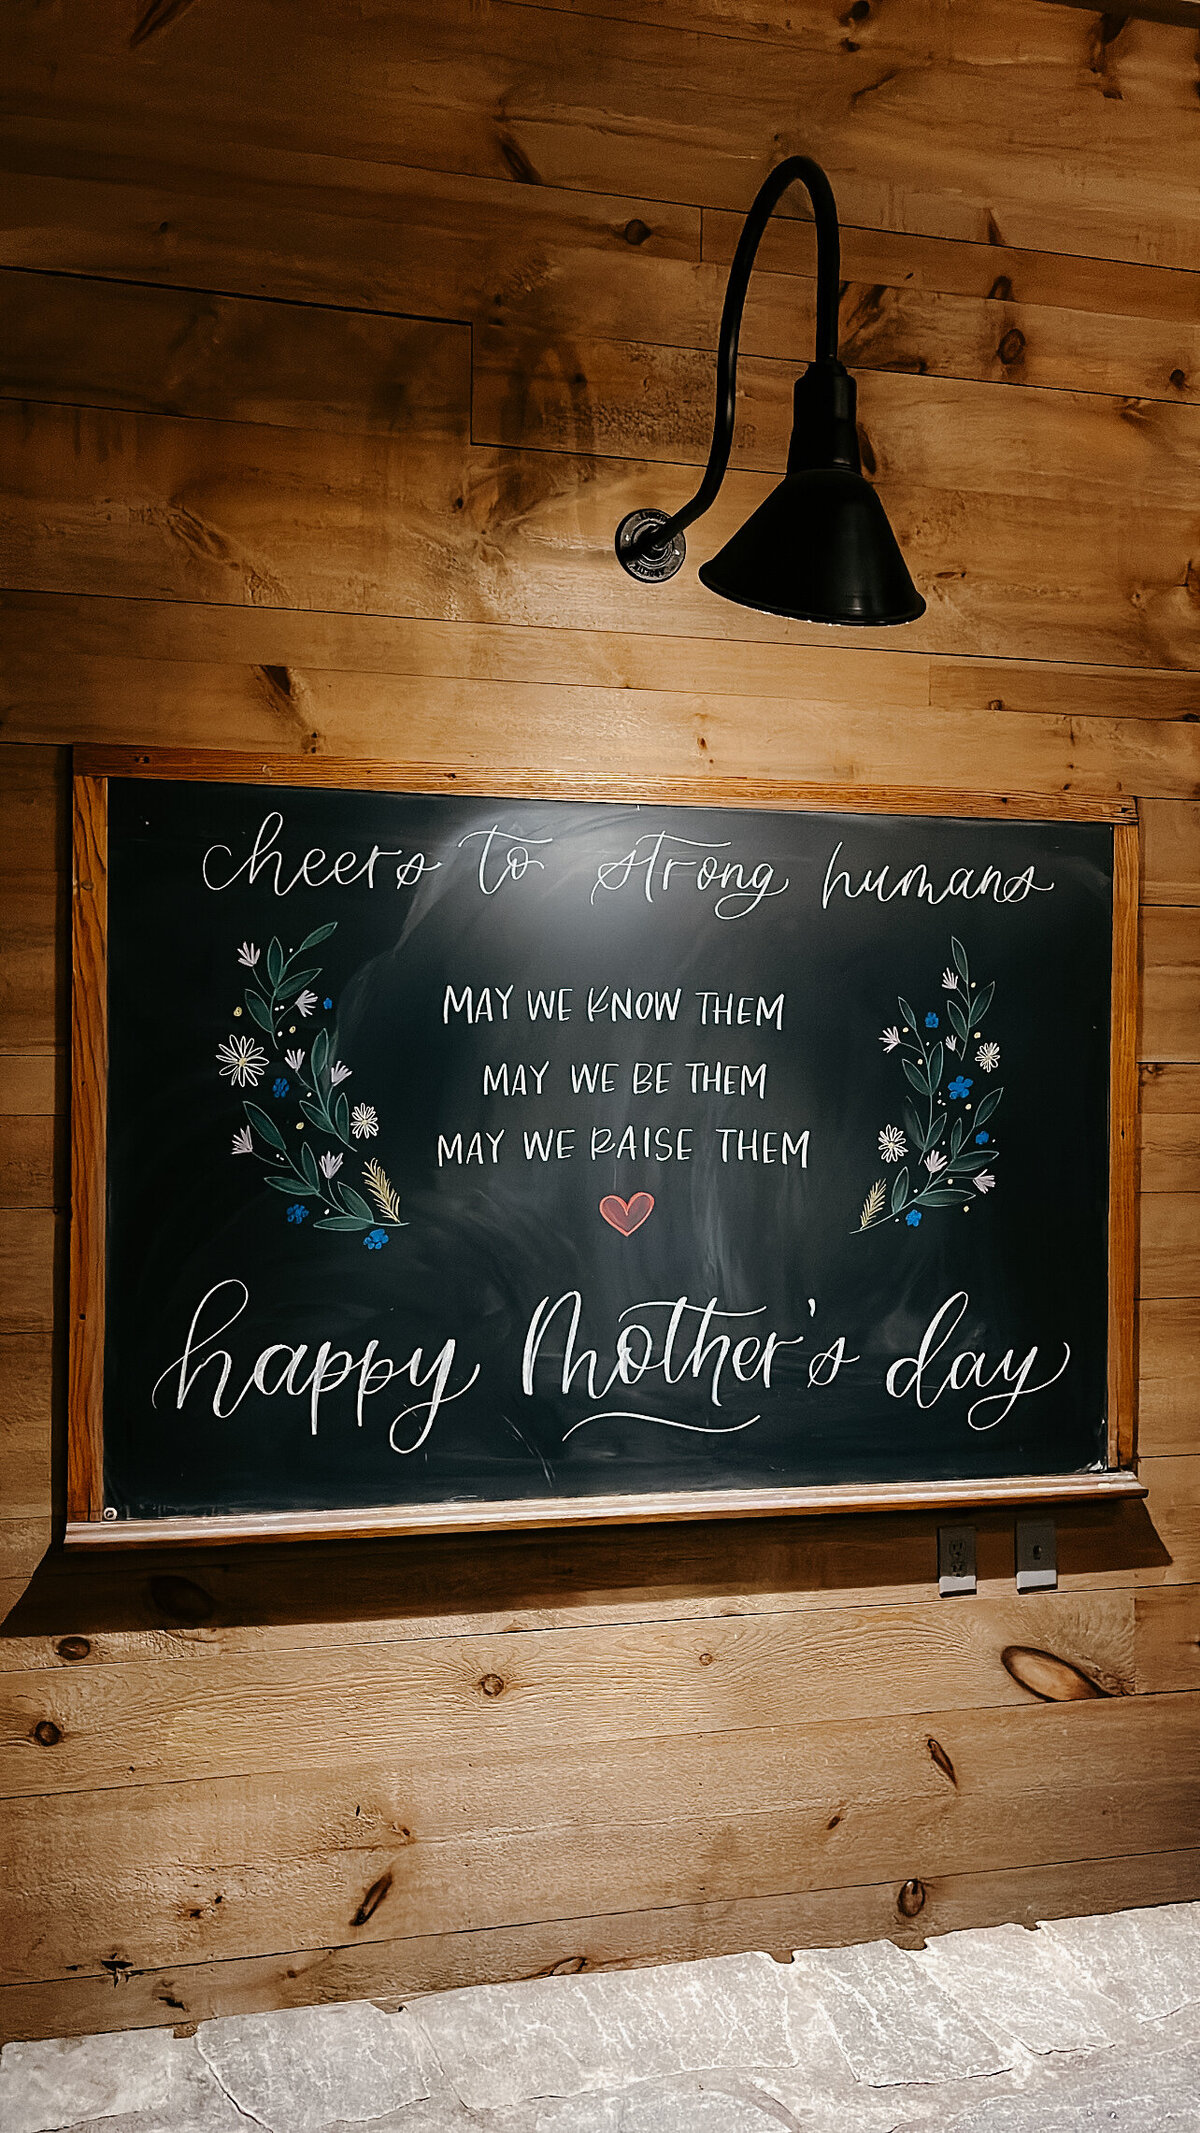 cheers to strong humans
MAY WE KNOW THEM
MAY WE BE THEM
MAY WE RAISE THEM
happy Mother's day